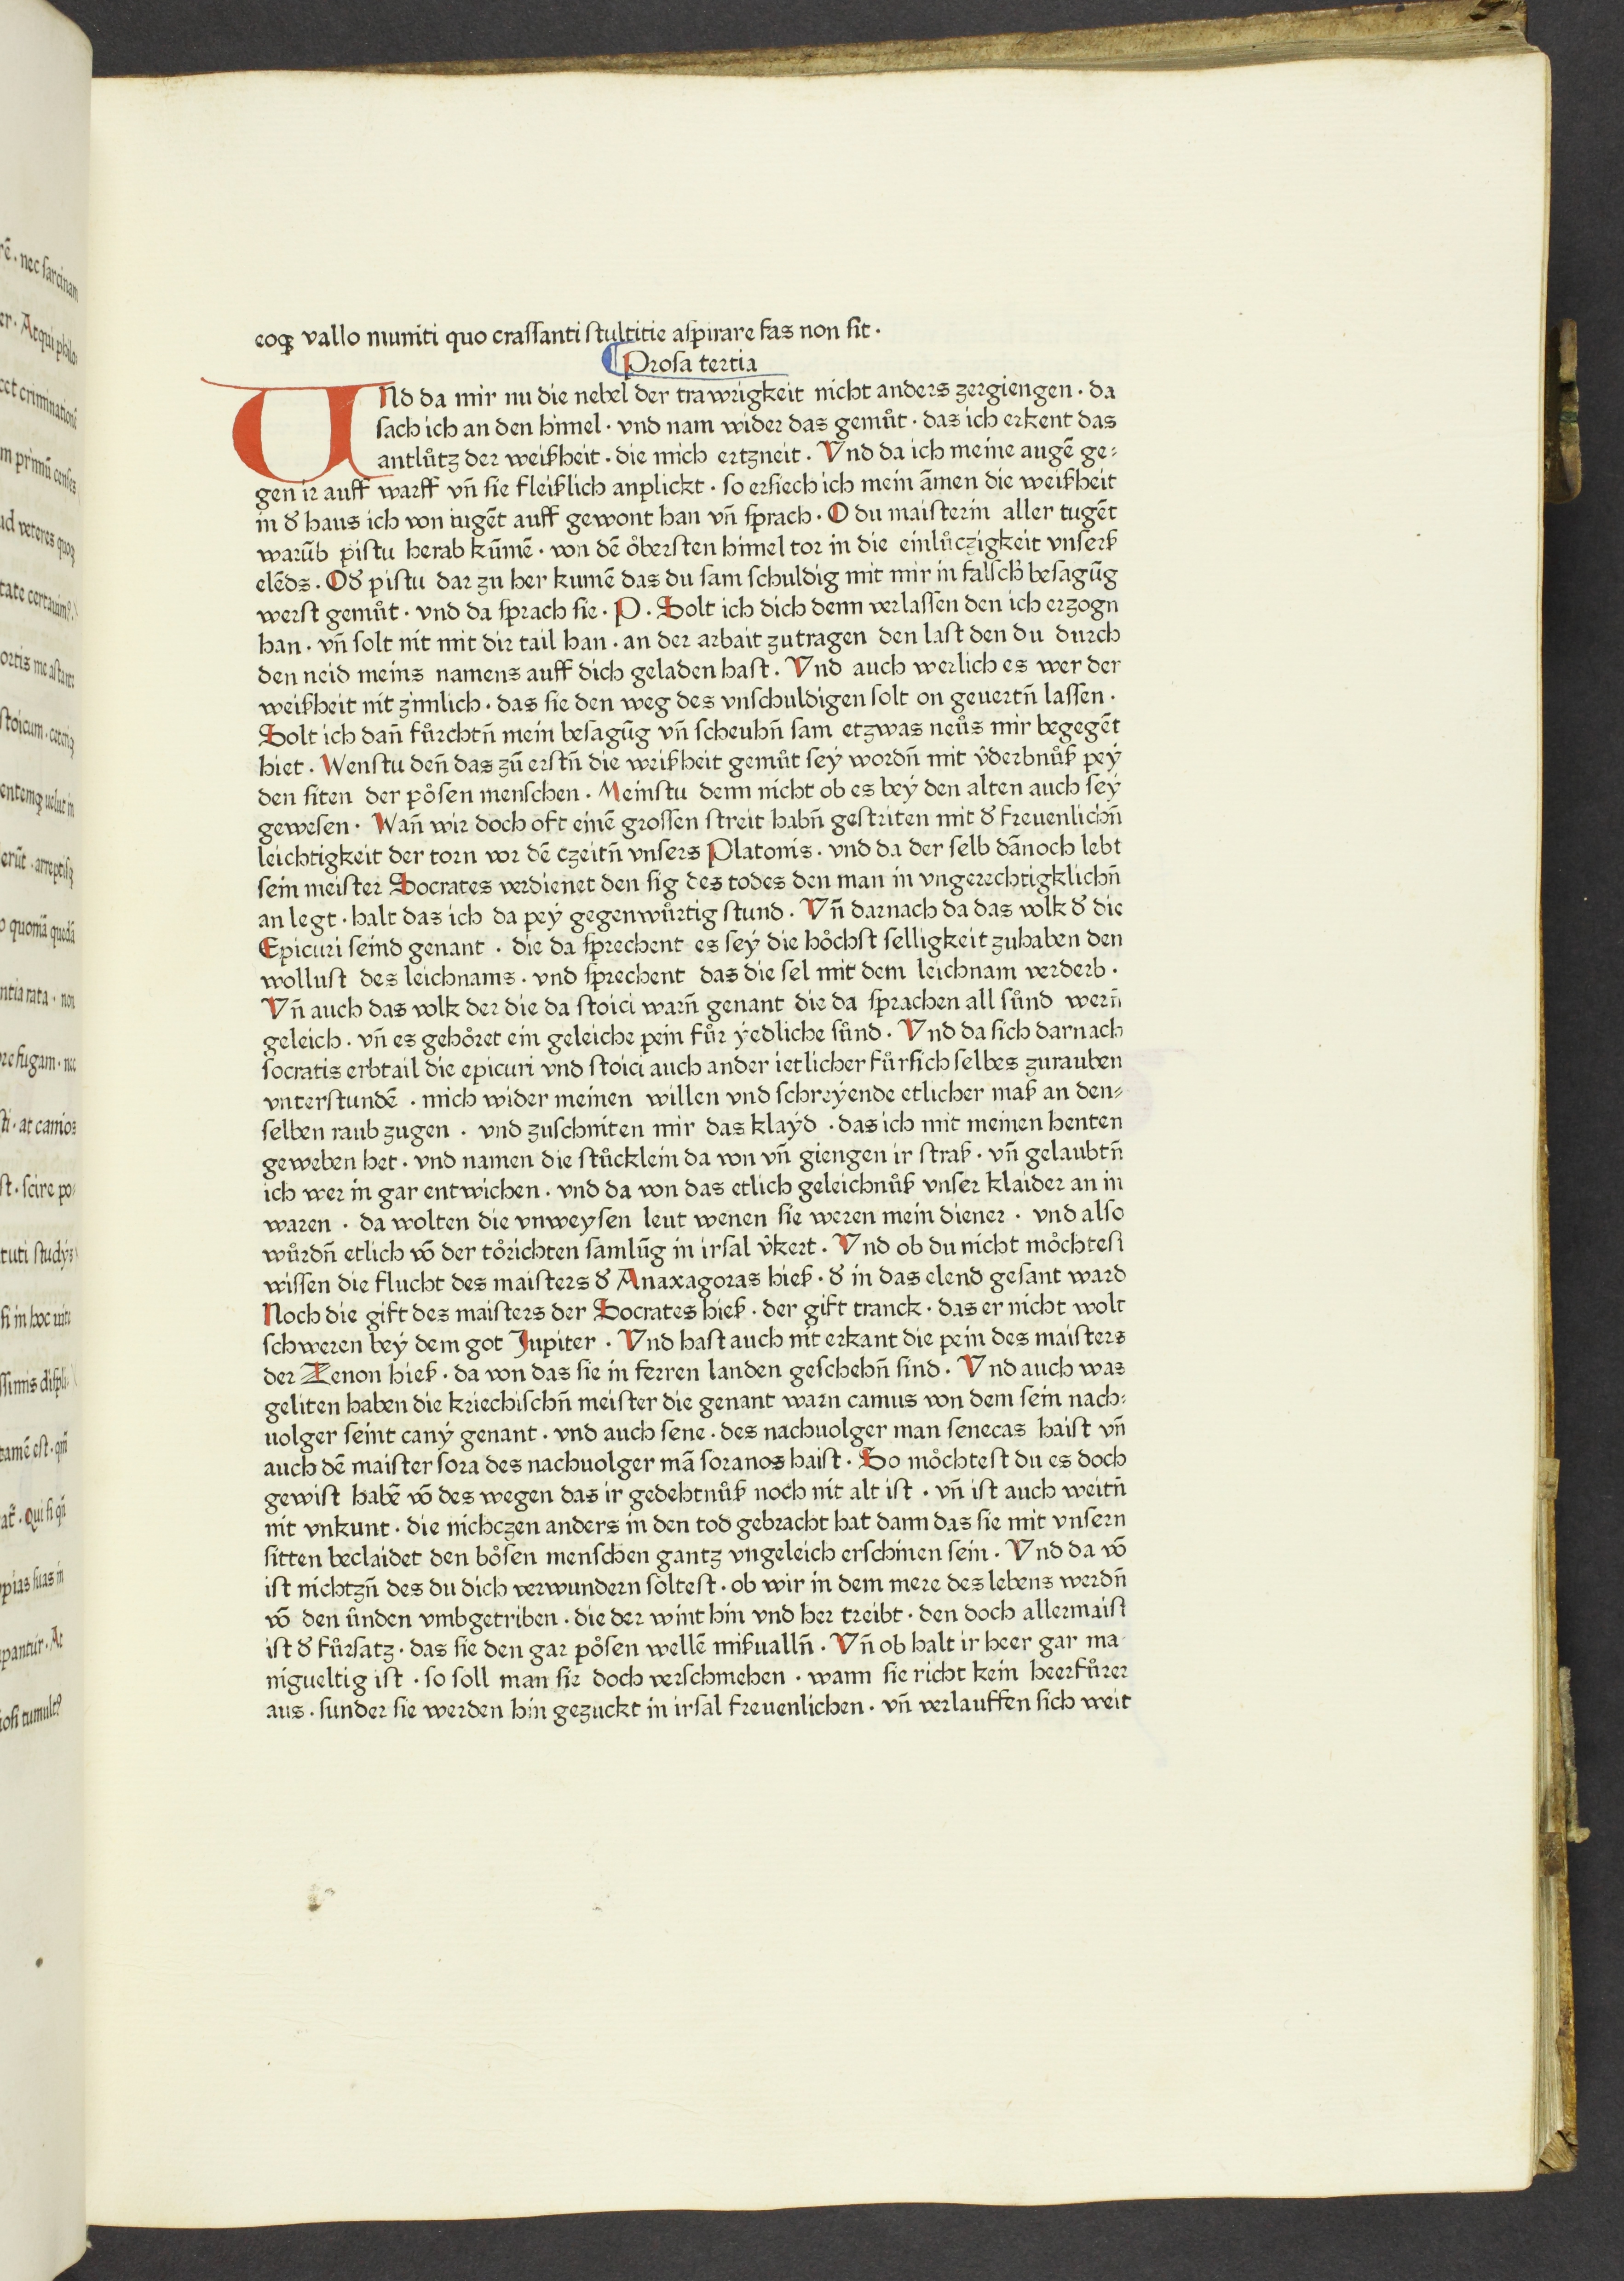 eoqꝫ vallo muniti quo craſſanti ſtultitie aſpirare fas non ſit ·
Proſa tertia
UNd da mir nu die nebel der trawrigkeit nicht anders zergiengen · da
ſach ich an den himel · vnd nam wider das gemuͦt · das ich erkent das
antluͦtz der weiſheit · die mich ertzneit · Vnd da ich meine augē ge⸗
gen ir auff warff vn̄ ſie fleiſlich anplickt · ſo erſiech ich mein āmen die weiſheit
in ď haus ich von iugēt auff gewont han vn̄ ſprach · O du maiſterin aller tugēt
warūb piſtu herab kūmē · von dē oͤberſten himel tor in die einluͦczigkeit vnſerſ
elēds · Oď piſtu dar zu her kumē das du ſam ſchuldig mit mir in falſch̓ beſagūg
werſt gemuͦt · vnd da ſprach ſie · P · Solt ich dich denn verlaſſen den ich erzogn
han · vn̄ ſolt nit mit dir tail han · an der arbait zutragen den laſt den du durch
den neid meins namens auff dich geladen haſt · Vnd auch werlich es wer der
weiſheit nit zimlich · das ſie den weg des vnſchuldigen ſolt on geuertn̄ laſſen ·
Solt ich dan̄ fuͦrchtn̄ mein beſagūg vn̄ ſcheuhn̄ ſam etzwas neuͦs mir begegēt
hiet · Wenſtu den̄ das zū erſtn̄ die weiſheit gemuͦt ſey wordn̄ mit v̓derbnuͦſ pey
den ſiten der poͤſen menſchen · Meinſtu denn nicht ob es bey den alten auch ſey
geweſen · Wan̄ wir doch oft einē groſſen ſtreit habn̄ geſtriten mit ď freuenlichn̄
leichtigkeit der torn vor dē czeitn̄ vnſers Platonis · vnd da der ſelb dānoch lebt
ſein meiſter Socrates verdienet den ſig des todes den man in vngerechtigklichn̄
an legt · halt das ich da pey gegenwuͦrtig ſtund · Vn̄ darnach da das volk ď die
Epicuri ſeind genant · die da ſprechent es ſey die hoͤchſt ſelligkeit zuhaben den
wolluſt des leichnams · vnd ſprechent das die ſel mit dem leichnam verderb ·
Vn̄ auch das volk der die da ſtoici warn̄ genant die da ſprachen all ſuͦnd wern̄
geleich · vn̄ es gehoͤret ein geleiche pein fuͦr yedliche ſuͦnd · Vnd da ſich darnach
ſocratis erbtail die epicuri vnd ſtoici auch ander ietlicher fuͦrſich ſelbes zurauben
vnterſtundē · mich wider meinen willen vnd ſchreyende etlicher maſ an den⸗
ſelben raub zugen · vnd zuſchniten mir das klayd · das ich mit meinen henten
geweben het · vnd namen die ſtuͦcklein da von vn̄ giengen ir ſtraſ · vn̄ gelaubtn̄
ich wer in gar entwichen · vnd da von das etlich geleichnuͦſ vnſer klaider an in
waren · da wolten die vnweyſen leut wenen ſie weren mein diener · vnd alſo
wuͦrdn̄ etlich vō der toͤrichten ſamlūg in irſal v̓kert · Vnd ob du nicht moͤchteſt
wiſſen die flucht des maiſters ď Anaxagoras hieſ · ď in das elend geſant ward
Noch die gift des maiſters der Socrates hieſ · der gift tranck · das er nicht wolt
ſchweren bey dem got Jupiter · Vnd haſt auch nit erkant die pein des maiſters
der Zenon hieſ · da von das ſie in ferren landen geſchehn̄ ſind · Vnd auch was
geliten haben die kriechiſchn̄ meiſter die genant warn camus von dem ſein nach⸗
uolger ſeint cany genant · vnd auch ſene · des nachuolger man ſenecas haiſt vn̄
auch dē maiſter ſora des nachuolger mā ſoranos haiſt · So moͤchteſt du es doch
gewiſt habē vō des wegen das ir gedehtnuͦſ noch nit alt iſt · vn̄ iſt auch weitn̄
nit vnkunt · die nichczen anders in den tod gebracht hat dann das ſie mit vnſern
ſitten beclaidet den boͤſen menſchen gantz vngeleich erſchinen ſein · Vnd da vō
iſt nichtzn̄ des du dich verwundern ſolteſt · ob wir in dem mere des lebens werdn̄
vō den uͦnden vmbgetriben · die der wint hin vnd her treibt · den doch allermaiſt
iſt ď fuͦrſatz · das ſie den gar poͤſen wellē miſualln̄ · Vn̄ ob halt ir heer gar ma
nigueltig iſt · ſo ſoll man ſie doch verſchmehen · wann ſie richt kein heerfuͦrer
aus · ſunder ſie werden hin gezuckt in irſal freuenlichen · vn̄ verlauffen ſich weit